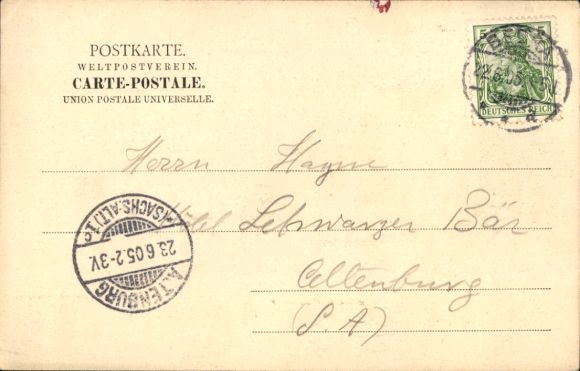 POSTKARTE.
WELTPOSTVEREIN.
CARTE-POSTALE.
UNION POSTALE UNIVERSELLE.
5 5
DEUTSCHES REICH
22.6.05
Herrn Hayne
Hôtel Schwarzer Bär
Altenburg
(S. A)
ALTENBURG
23.6.05.2-3V.
(SACHS.ALT.) 1c